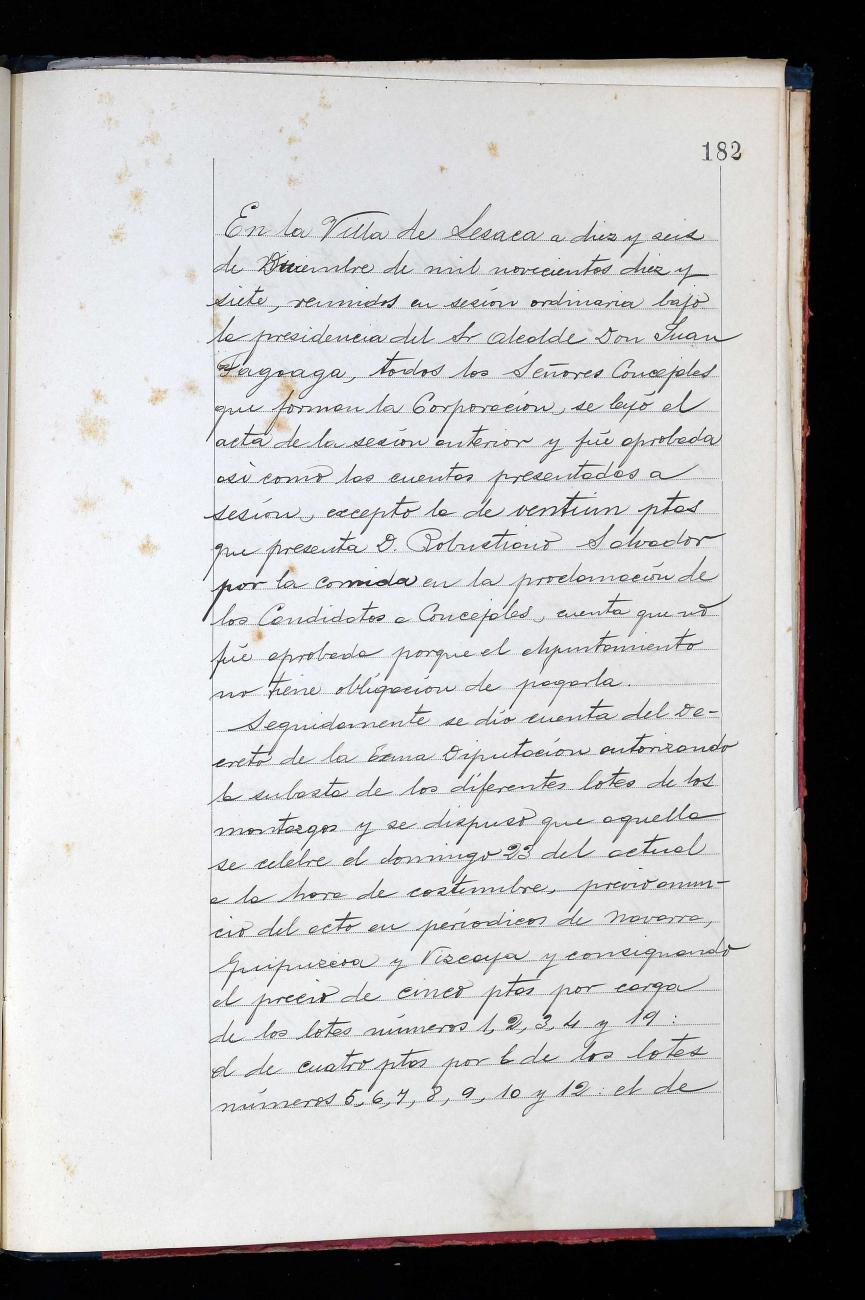 182
En la Villa de Lesaca a diez y seis
de Diciembre de mil novecientos diez y
siete, reunidos en sesión ordinaria bajo
la presidencia del Sr Alcalde Don Juan
Fagoaga, todos los Señores Concejales
que forman la Corporación, se leyó el
acta de la sesión anterior y fué aprobada
asi como las cuentas presentadas a
sesión, excepto la de ventiun ptas
que presenta D. Robustiano Salvador
por la comida en la proclamación de
los Candidatos a Concejales, cuenta que no
fué aprobada porque el Ayuntamiento
no tiene obligación de pagarla.
Seguidamente se dió cuenta del De-
creto de la Exma Diputación autorizando
la subasta de los diferentes lotes de los
montazgos y se dispuso que aquella
se celebre el domingo 23 del actual
a la hora de costumbre, previo anun-
cio del acto en periodicos de Navarra,
Guipuzcoa y Vizcaya y consignando
el precio de cinco ptas por carga
de los lotes números 1, 2, 3, 4 y 19:
el de cuatro ptas por la de los lotes
números 5, 6, 7, 8, 9, 10 y 12: el de